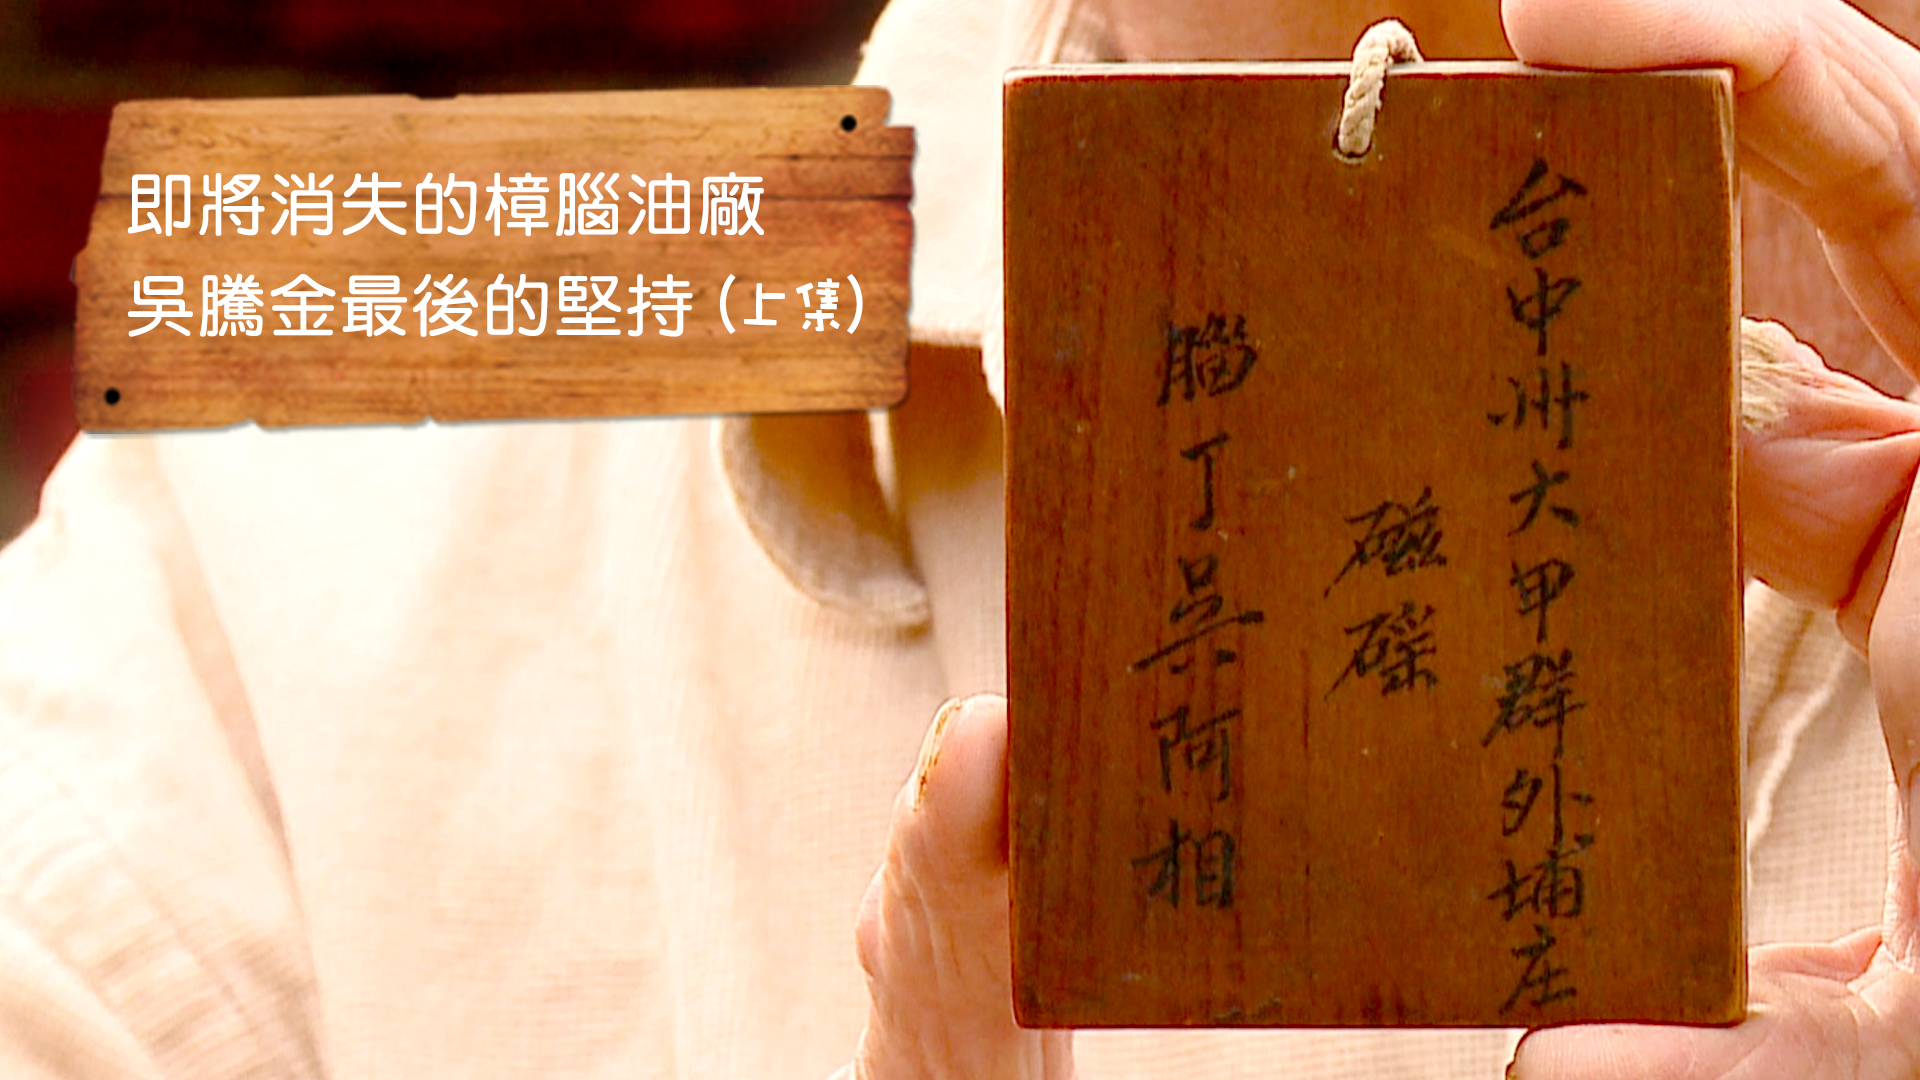 即將消失的樟腦油廠
吳騰金最後的堅持(上集)
台中州大甲群外埔庄
磁磘
腦丁吳阿相